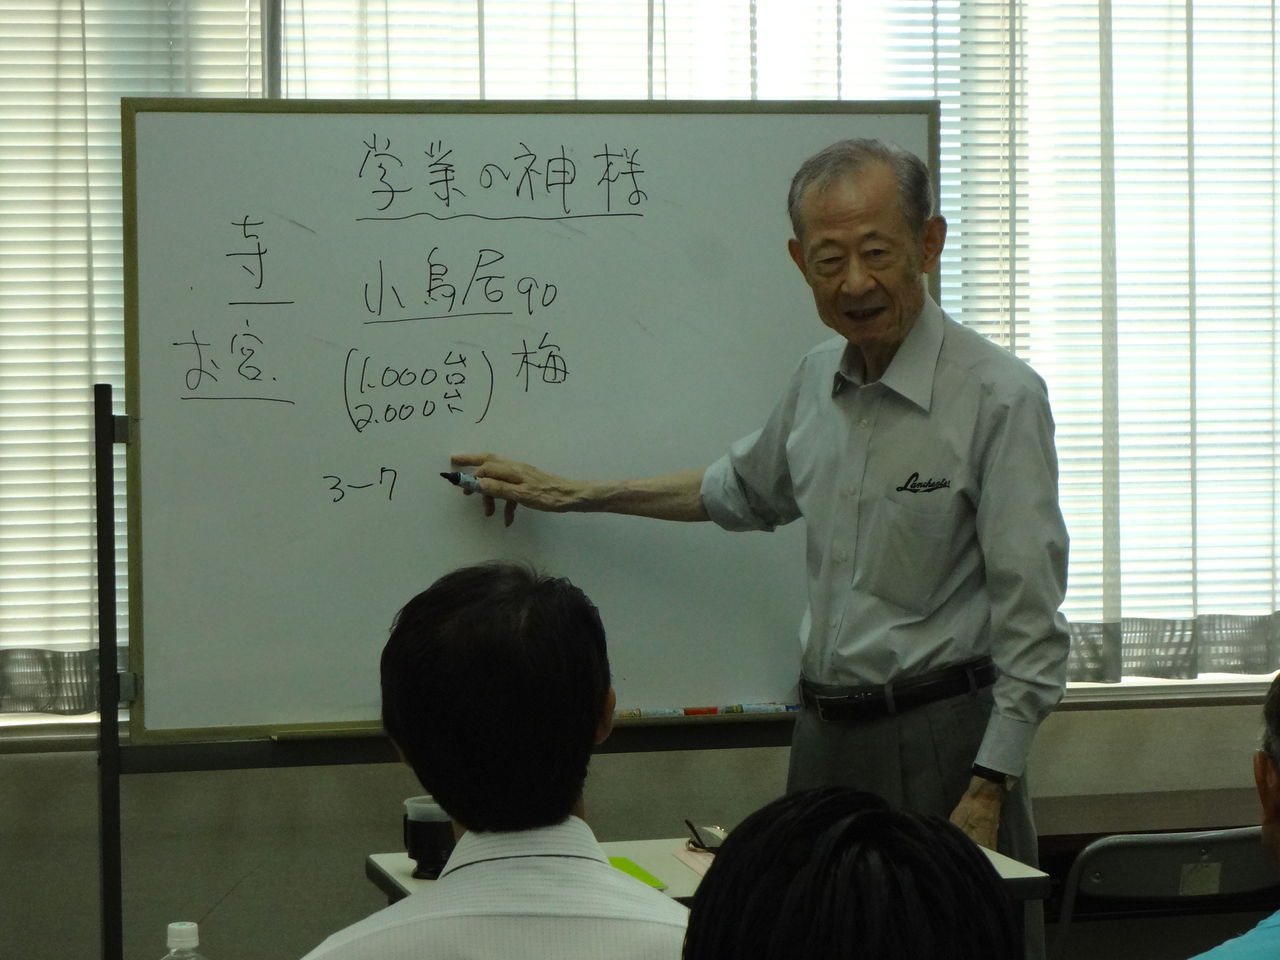 学業の神様
寺
小鳥居90
お宮.
(1.000台
2.000台)
梅
3-7
Lanchester